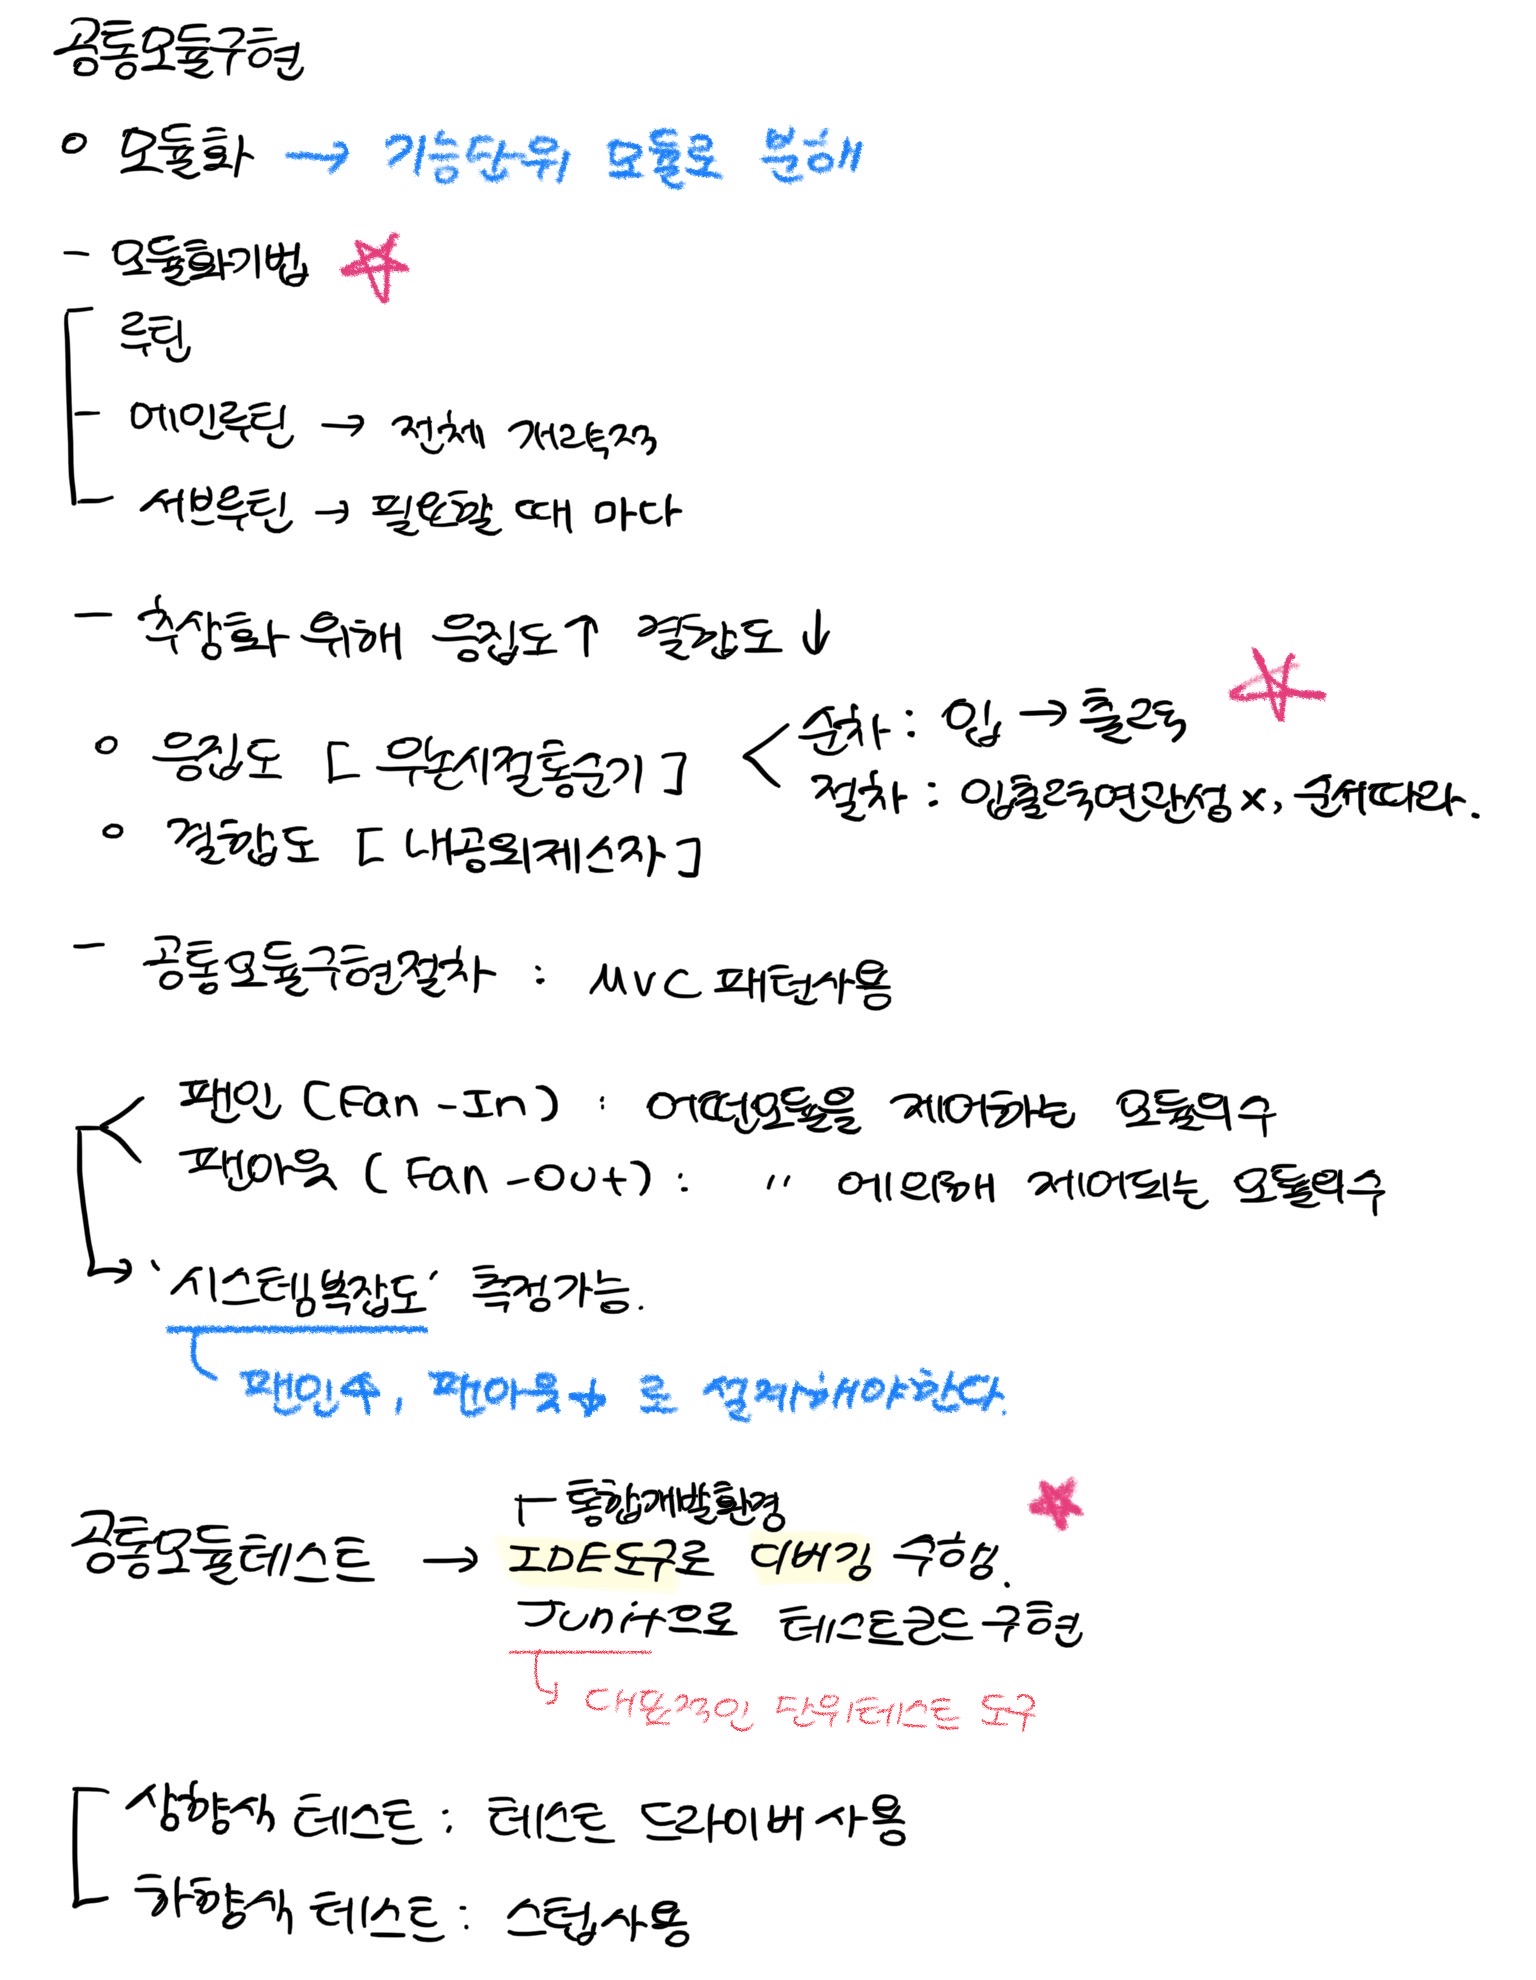 공통모듈구현
o 모듈화 → 기능단위 모듈로 분해
- 모듈화기법 ☆
루틴
- 메인루틴 → 전체 개략적
- 서브루틴 → 필요할 때 마다
- 추상화 위해 응집도↑ 결합도↓
o 응집도 [우논시절통순기]
< 순차 : 입 → 출력 ☆
절차 : 입출력연관성x, 순서따라.
o 결합도 [내공외제스자]
- 공통모듈구현절차 : MVC 패턴사용
< 팬인 (Fan-In) : 어떤모듈을 제어하는 모듈의수
팬아웃 (Fan-Out) : 〃 에의해 제어되는 모듈의수
→ '시스템복잡도' 측정가능.
팬인↑, 팬아웃↓ 로 설계해야한다.
통합개발환경 ★
공통모듈테스트 → IDE도구로 디버깅 수행.
Junit으로 테스트코드구현
↳ 대표적인 단위테스트 도구
상향식 테스트 : 테스트 드라이버사용
하향식 테스트 : 스텁사용